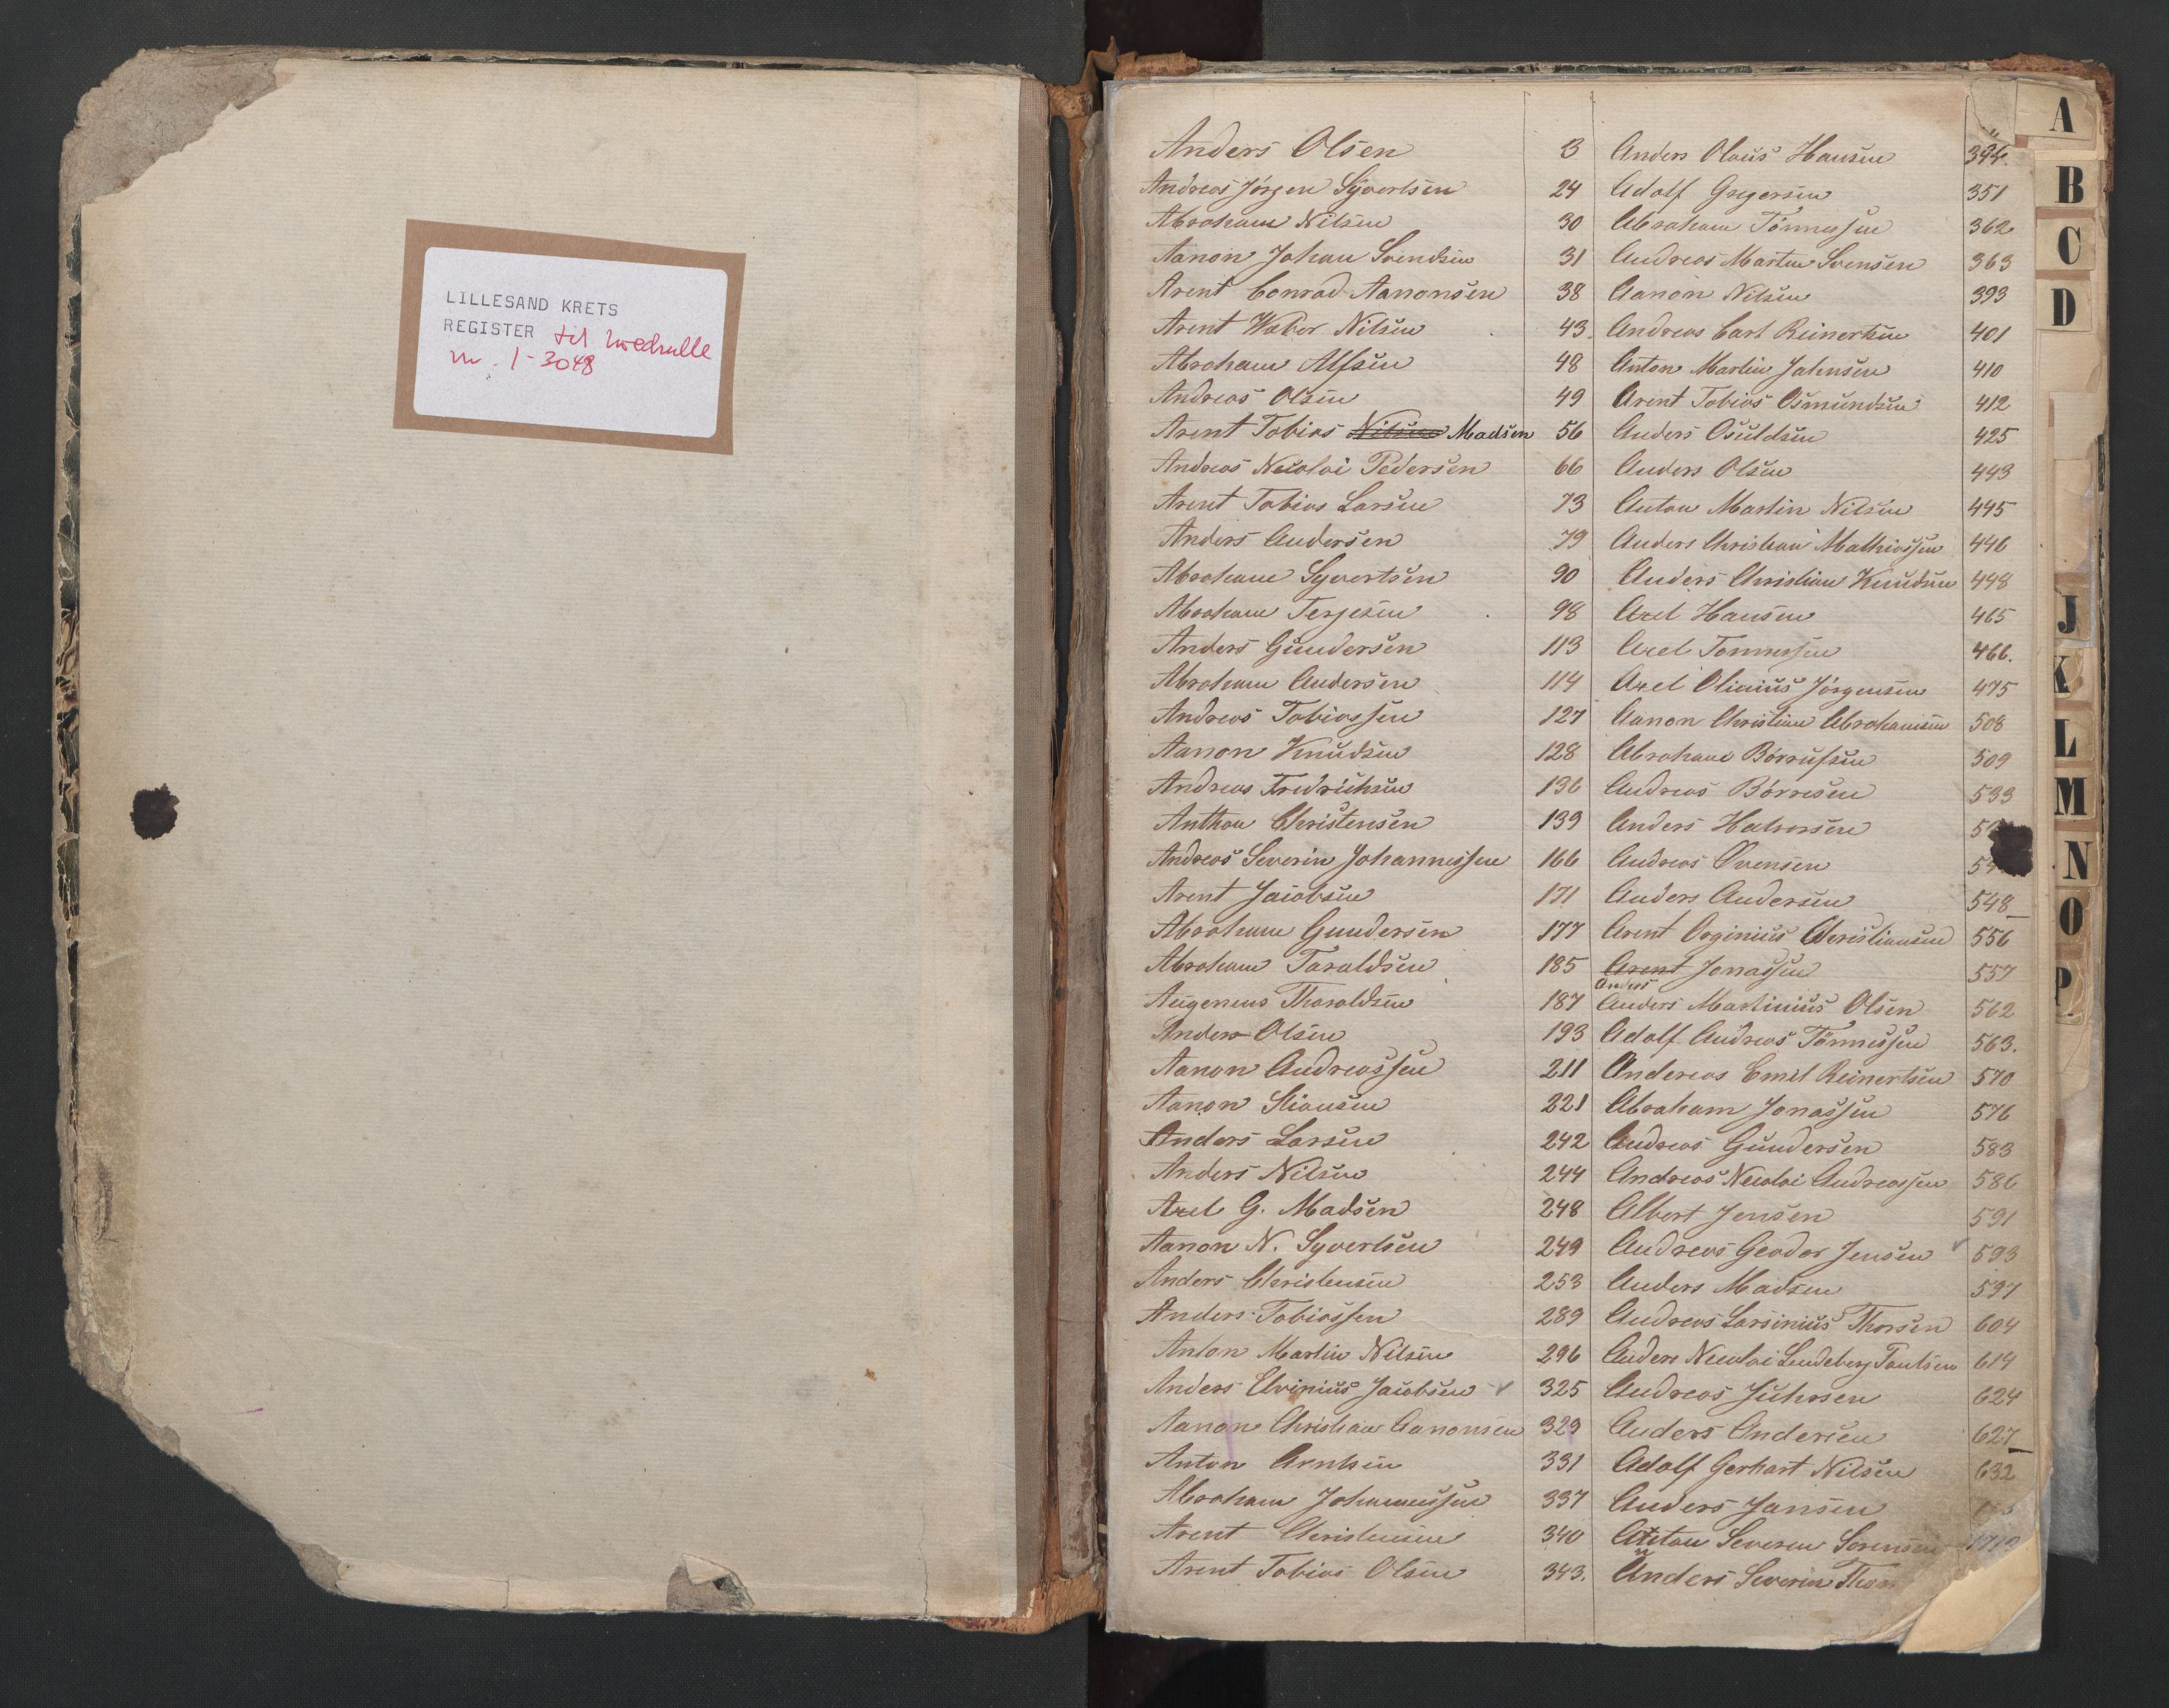 LILLESAND KRETS
REGISTER til hovedrulle
nr. 1-3048
Anders Olsen 3
Andreas Jörgen Syvertsen 24
Abraham Nilsen 30
Aanon Johan Svendsen 31
Arent Conrad Aanonsen 38
Arent Weber Nilsen 43
Abraham Alfsen 48
Andreas Olsen 49
Arent Tobias Nilsen Madsen 56
Andreas Nicolai Pedersen 66
Arent Tobias Larsen 73
Anders Andersen 79
Abraham Syvertsen 90
Abraham Terjesen 98
Anders Gundersen 113
Abraham Andersen 114
Andreas Tobiassen 127
Aanon Knudsen 128
Andreas Fredrichsen 136
Anthon Christensen 139
Andreas Severin Johannessen 166
Arent Jacobsen 171
Abraham Gundersen 177
Abraham Taraldsen 185
Augenius Tharaldsen 187
Anders Olsen 193
Aanon Andreassen 211
Aanon Stiansen 221
Anders Larsen 242
Anders Nilsen 244
Axel G. Madsen 248
Aanon N. Syvertsen 249
Anders Christensen 253
Anders Tobiassen 289
Anton Martin Nilsen 296
Anders Elvinius Jacobsen 325
Aanon Christian Aanonsen 329
Anton Arntsen 331
Abraham Johannessen 337
Arent Christensen 340
Arent Tobias Olsen 343.
Anders Olaus Hansen
Adolf Gregersen 351
Abraham Tönnessen 362
Andreas Martin Svensen 363
Aanon Nilsen 393
Andreas Carl Reinertsen 401
Anton Martin Jahnsen 410
Arent Tobias Osmundsen 412
Anders Osuldsen 425
Anders Olsen 443
Anton Martin Nilsen 445
Anders Christian Mathiassen 446
Anders Christian Knudsen 448
Axel Hansen 465
Axel Tönnessen 466.
Axel Olinius Jörgensen 475
Aanon Christian Abrahamsen 508
Abraham Börrufsen 509
Andreas Börresen 533
Anders Halvorsen
Andreas Svensen
Anders Andersen 548
Arent Orginius Christiansen 556
Arent Jonassen 557
Anders
Anders Martinius Olsen 562
Adolf Andreas Tönnessen 563.
Andereas Emil Reinertsen 570
Abraham Jonassen 576
Andreas Gundersen 583
Andreas Nicolai Andreassen 586
Albert Jensen 591
Andreas Geodor Jensen 593
Anders Madsen 597
Andreas Larsinius Thorsen 604
Anders Nicolai Lindeberg Pautsen 614
Andreas Juhrsen 624
Anders Andersen 627
Adolf Gerhart Nilsen 632
Anders Jansen
Anton Severin Sörensen
Anders Severin
A
B
C
D
J
K
L
M
N
O
P